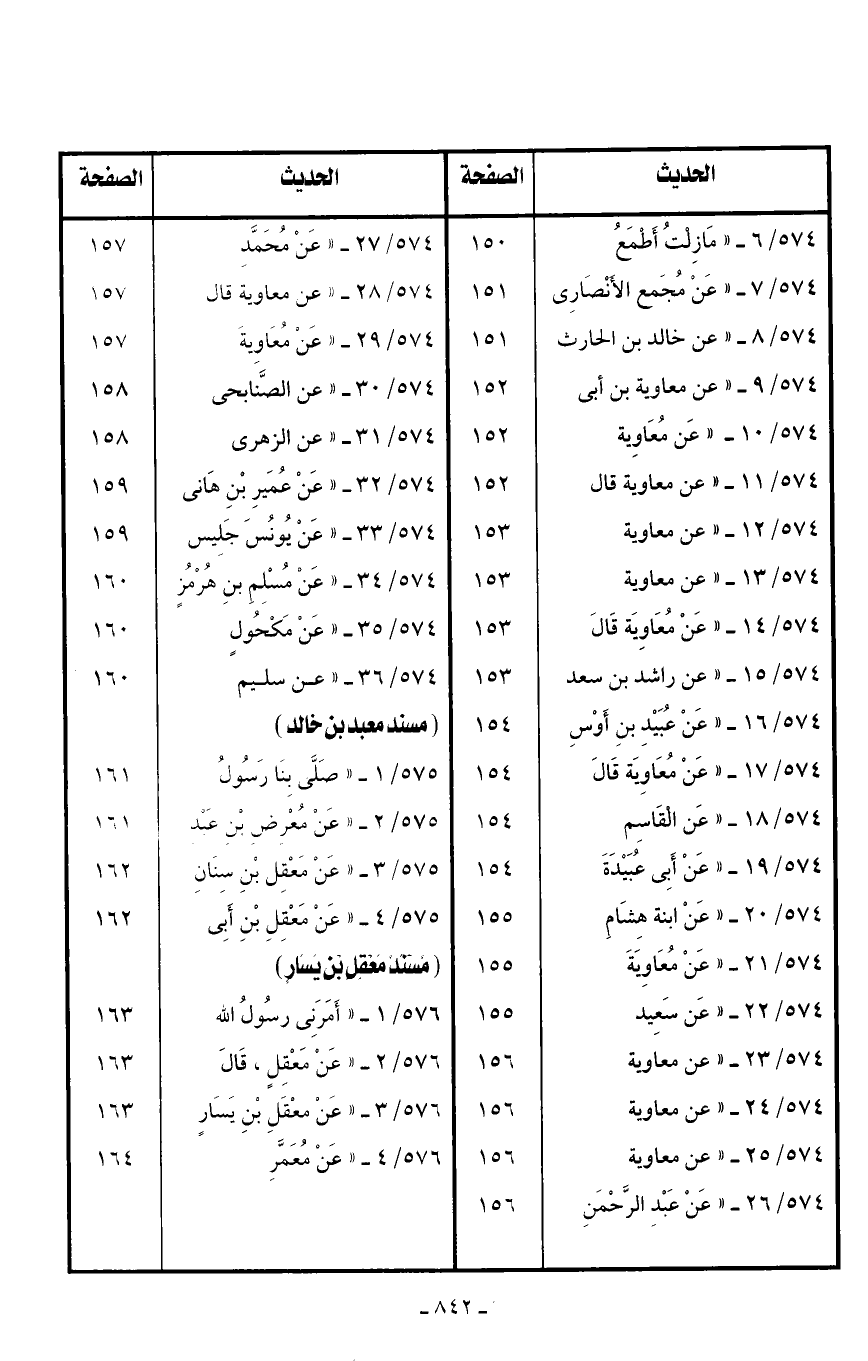 الحديث الصفحة
٥٧٤/ ٦ ـ « مَازِلْتُ أَطْمَعُ ١٥٠
٥٧٤/ ٧ ـ « عَنْ مُجَمع الأَنْصَارِى ١٥١
٥٧٤/ ٨ ـ « عن خالد بن الحارث ١٥١
٥٧٤/ ٩ ـ « عن معاوية بن أبى ١٥٢
٥٧٤/ ١٠ ـ « عَن مُعَاوِية ١٥٢
٥٧٤/ ١١ ـ « عن معاوية قال ١٥٢
٥٧٤/ ١٢ ـ « عن معاوية ١٥٣
٥٧٤/ ١٣ ـ « عن معاوية ١٥٣
٥٧٤/ ١٤ ـ « عَنْ مُعَاوِيَة قَالَ ١٥٣
٥٧٤/ ١٥ ـ « عن راشد بن سعد ١٥٣
٥٧٤/ ١٦ ـ « عَنْ عُبَيْدِ بنِ أَوْسِ ١٥٤
٥٧٤/ ١٧ ـ « عَنْ مُعَاوِيَة قَالَ ١٥٤
٥٧٤/ ١٨ ـ « عَن الْقَاسِمِ ١٥٤
٥٧٤/ ١٩ ـ « عَنْ أَبِى عُبَيْدَةَ ١٥٤
٥٧٤/ ٢٠ ـ « عَنْ ابنة هِشَامِ ١٥٥
٥٧٤/ ٢١ ـ « عَنْ مُعَاوِيَةَ ١٥٥
٥٧٤/ ٢٢ ـ « عَن سَعِيد ١٥٥
٥٧٤/ ٢٣ ـ « عن معاوية ١٥٦
٥٧٤/ ٢٤ ـ « عن معاوية ١٥٦
٥٧٤/ ٢٥ ـ « عن معاوية ١٥٦
٥٧٤/ ٢٦ ـ « عَنْ عَبْدِ الرَّحْمَنِ ١٥٦
الحديث الصفحة
٥٧٤/ ٢٧ ـ « عَنْ مُحَمَّدِ ١٥٧
٥٧٤/ ٢٨ ـ « عن معاوية قال ١٥٧
٥٧٤/ ٢٩ ـ « عَنْ مُعَاوِيةَ ١٥٧
٥٧٤/ ٣٠ ـ « عن الصنَّابحى ١٥٨
٥٧٤/ ٣١ ـ « عن الزهرى ١٥٨
٥٧٤/ ٣٢ ـ « عَنْ عُمَيرِ بْنِ هَانى ١٥٩
٥٧٤/ ٣٣ ـ « عَنْ يُونُسَ جَلِيس ١٥٩
٥٧٤/ ٣٤ ـ « عَنْ مُسْلِمِ بنِ هُرْمُزٍ ١٦٠
٥٧٤/ ٣٥ ـ « عَنْ مَكْحُولٍ ١٦٠
٥٧٤/ ٣٦ ـ « عـن سلـيم ١٦٠
( مسند معبد بن خالد )
٥٧٥/ ١ ـ « صَلَّى بِنَا رَسُولُ ١٦١
٥٧٥/ ٢ ـ « عَنْ مُعْرِضِ بْنِ عَبْد ١٦١
٥٧٥/ ٣ ـ « عَنْ مَعْقِلِ بْنِ سِنَانِ ١٦٢
٥٧٥/ ٤ ـ « عَنْ مَعْقِلِ بْنِ أَبِى ١٦٢
( مُسْنَدُ مَعْقِلِ بْنِ يَسَارٍ )
٥٧٦/ ١ ـ « أَمَرَنِى رسُولُ الله ١٦٣
٥٧٦/ ٢ ـ « عَنْ مَعْقِلٍ ، قَالَ ١٦٣
٥٧٦/ ٣ ـ « عَنْ معْقَلِ بْنِ يَسَارٍ ١٦٣
٥٧٦/ ٤ ـ « عَنْ مُعَمَّرِ ١٦٤
ـ ٨٤٢ ـ